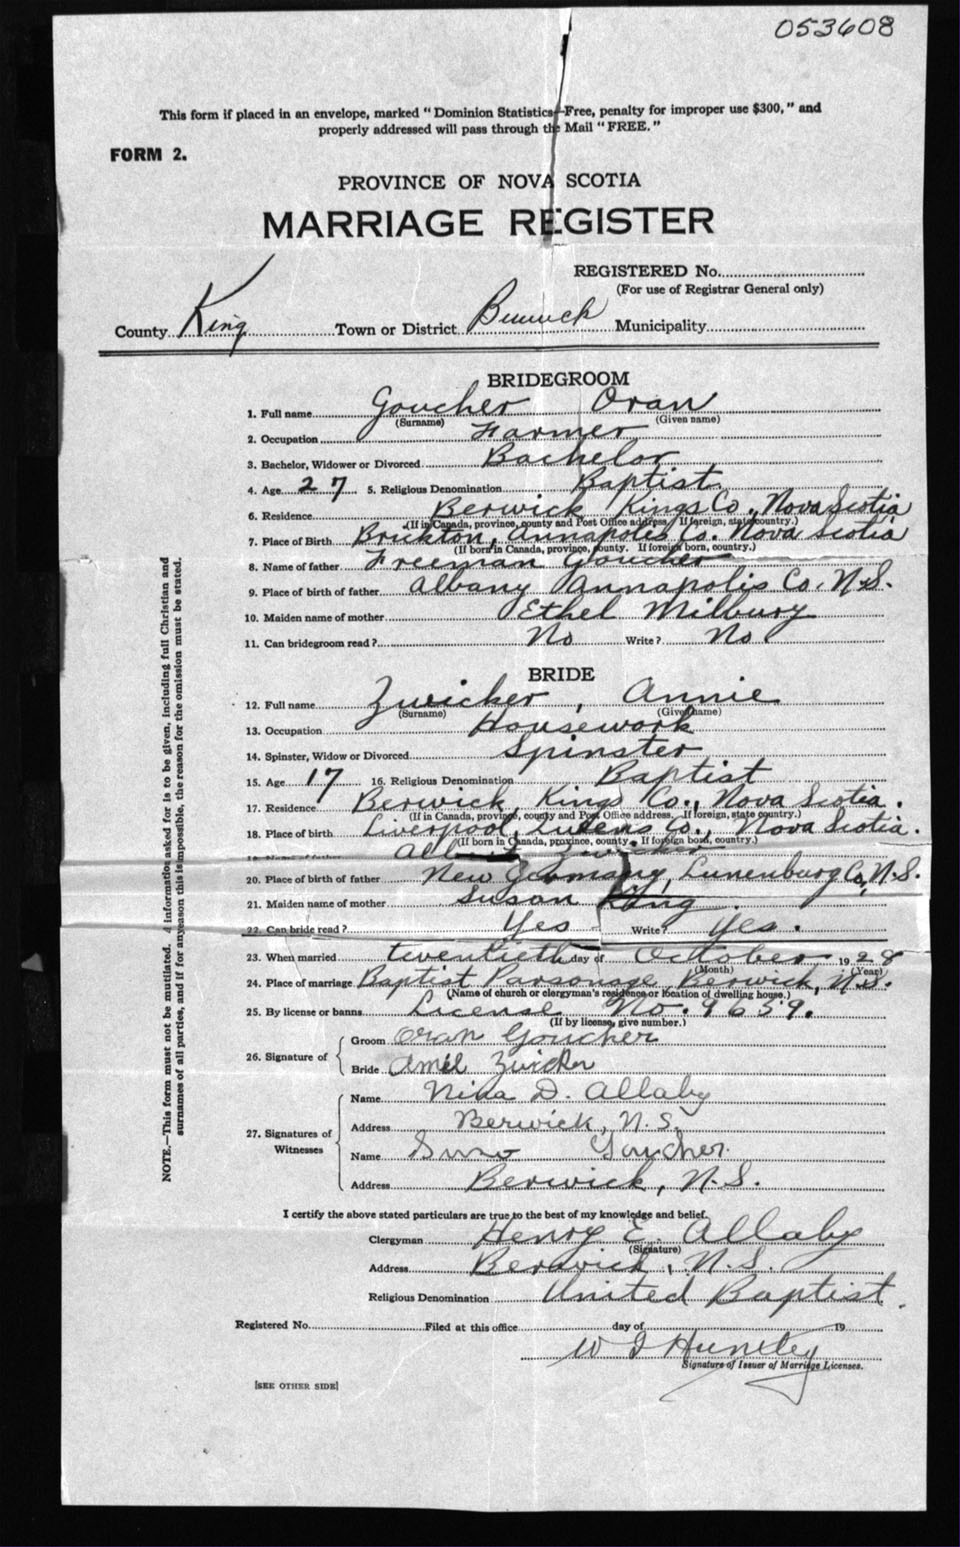 053608
This form if placed in an envelope, marked "Dominion Statistics—Free, penalty for improper use $300," and
properly addressed will pass through the Mail "FREE."
FORM 2.
PROVINCE OF NOVA SCOTIA
MARRIAGE REGISTER
REGISTERED No.
(For use of Registrar General only)
County King Town or District Berwick Municipality
BRIDEGROOM
1. Full name Goucher Oran
(Surname) (Given name)
2. Occupation Farmer
3. Bachelor, Widower or Divorced Bachelor
4. Age 27 5. Religious Denomination Baptist
6. Residence Berwick Kings Co., Nova Scotia
(If in Canada, province, county and Post Office address. If foreign, state country.)
7. Place of Birth Brickton, Annapolis Co. Nova Scotia
(If born in Canada, province, county. If foreign born, country.)
8. Name of father Freeman Goucher
9. Place of birth of father Albany Annapolis Co. N.S.
10. Maiden name of mother Ethel Milbury
11. Can bridegroom read? No Write? No
BRIDE
12. Full name Zwicker, Annie
(Surname) (Given name)
13. Occupation Housework
14. Spinster, Widow or Divorced Spinster
15. Age 17 16. Religious Denomination Baptist
17. Residence Berwick, Kings Co., Nova Scotia.
(If in Canada, province, county and Post Office address. If foreign, state country.)
18. Place of birth Liverpool, Queens Co., Nova Scotia.
(If born in Canada, province, county. If foreign born, country.)
19. Name of father Zwicker
20. Place of birth of father New Germany, Lunenburg Co, N.S.
21. Maiden name of mother Susan King.
22. Can bride read? Yes Write? Yes.
23. When married twentieth day of October 1928
(Month) (Year)
24. Place of marriage Baptist Parsonage, Berwick, N.S.
(Name of church or clergyman's residence or location of dwelling house.)
25. By license or banns License No. 9659.
(If by license, give number.)
26. Signature of
Groom Oran Goucher
Bride Zwicker
27. Signatures of Witnesses
Name Nina D. Allaby
Address Berwick, N.S.
Name Goucher.
Address Berwick, N.S.
I certify the above stated particulars are true to the best of my knowledge and belief.
Clergyman Henry E. Allaby
(Signature)
Address Berwick, N.S.
Religious Denomination United Baptist.
Registered No. Filed at this office day of 19
Huntley
Signature of Issuer of Marriage Licenses.
[SEE OTHER SIDE]
NOTE.—This form must not be mutilated. information asked for is to be given, including full Christian and
surnames of all parties, and if for any reason this is impossible, the reason for the omission must be stated.